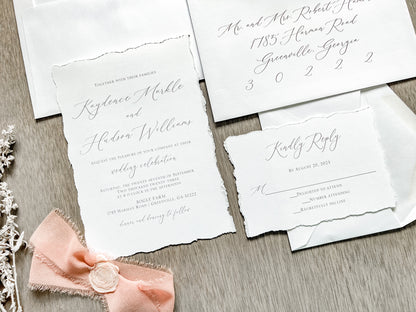 Together with their families
Kaydence Markle
and
Hudson Williams
request the pleasure of your company at their
wedding celebration
Saturday, the twenty seventh of September
two thousand twenty three
at in the afternoon
Rolly Farm
2785 Harman Road | Greenville, GA 30222
dinner and dancing to follow
Mr. and Mrs. Robert
1785 Harman Road
Greenville, Georgia
3 0 2 2 2
Kindly Reply
by August 20, 2023
M
Delightfully attending
Number attending
Regretfully decline